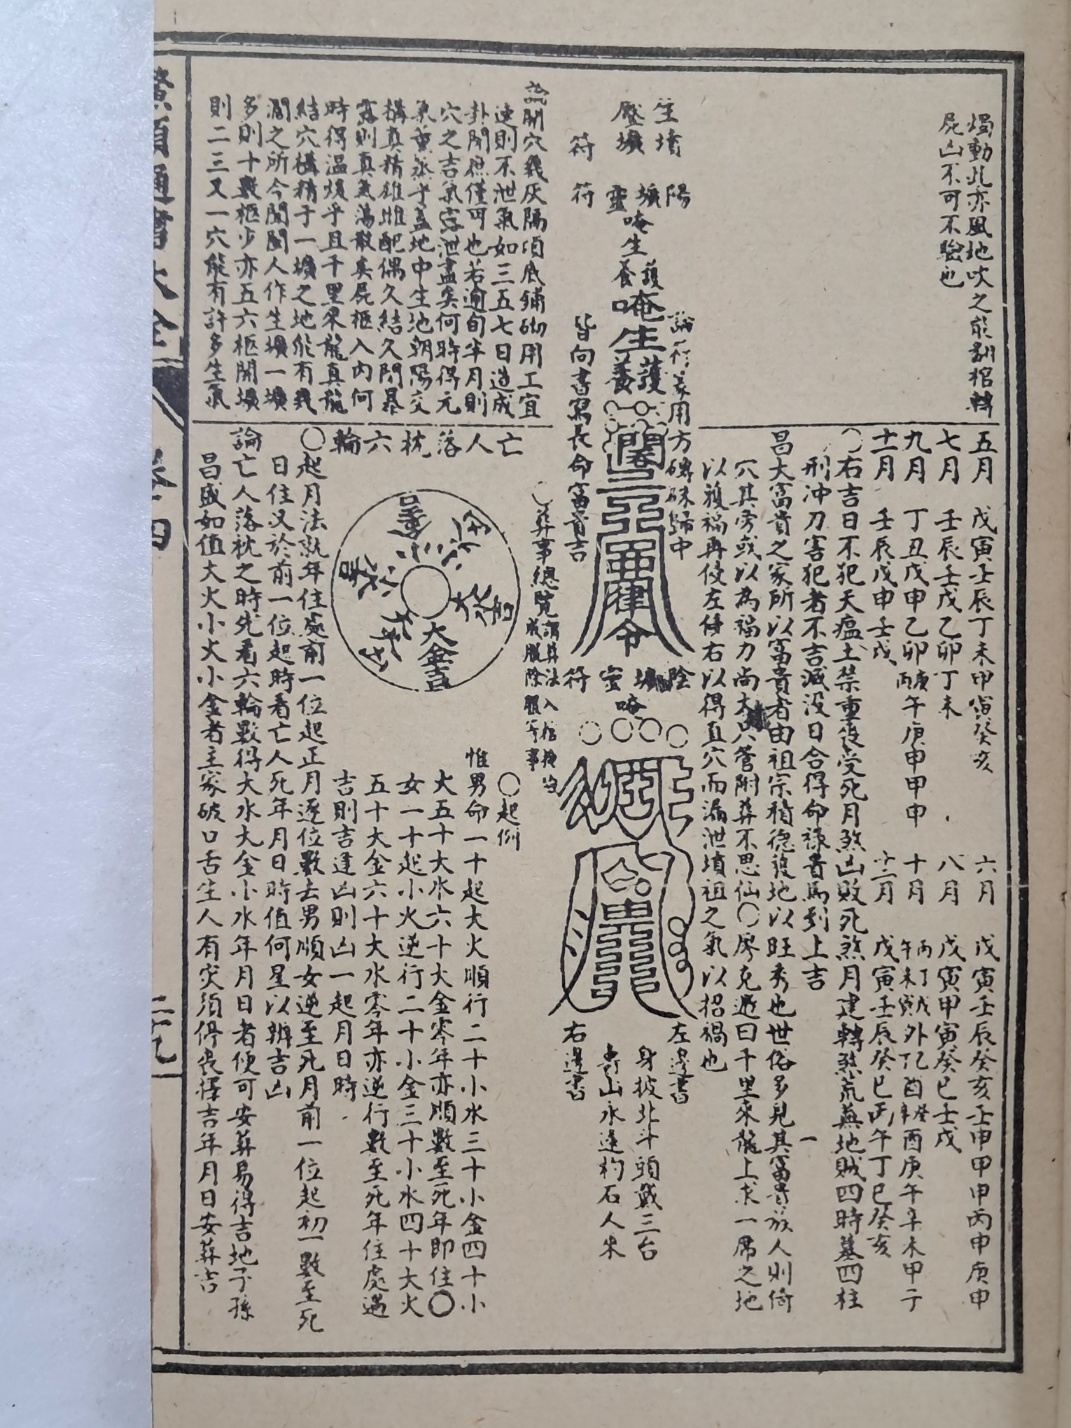 燭動此亦風地吹之能翻棺轉
屍山不可不騐也
生墳
壓壙
符
陽
壙
靈
符
唵生養護
唵生養護
論行墓用方磚硃歸中
皆向書寫長命富貴吉
論開穴幾仄隔頂底鋪砌用工宜
速則不泄氣如三五七日造成
卦開庶僅可也若逾旬半月則
穴之吉氣宻泄盡矣何時得元
氣重蒸乎蓋地中生地朝陽交
搆真精雄雌配偶久結久閉暴
露則真氣蕩散矣屍柩入內何
時得温煖乎且千里來龍真龍
結穴搆精于一壙之地能有幾
濶之所今閩閩人作生壙一壙
多則十數柩少亦五六柩開壙
則二三又一穴能有許多生氣
五月 戊寅壬辰丁未甲寅癸亥 六月 戊寅壬辰癸亥壬申甲申丙申庚申
七月 壬辰壬戊乙卯丁未 八月 戊寅甲寅癸巳壬戊
九月 丁丑戊申乙卯丙午庚申甲申 十月
十一月 壬辰戊申壬戊 十二月 戊寅壬辰癸巳丙午丁巳癸亥
〇右吉日不犯天瘟土禁重復受死月煞凶敗死煞月建轉煞荒蕪地賊四時墓四柱
刑冲刀害犯者不吉滅没日合得命祿貴馬到上吉
昌大富貴之家所以富貴者由祖宗積德護地以旺秀也世俗多見其富貴族人則倚
穴其旁或以為福力尚大八管附葬不思仙〇廖克遯曰千里來龍上求一席之地
以複福再侵左侵右以得真穴而漏泄墳祖之氣以招禍也
律令
陰
壙
靈
符
唵
左邊書
身披北斗頭戴三台
壽山永遠朽石人朱
右邊書
〇葬事總覧
成服除服等事
〇起例
惟男命一十起大火順行二十小水三十小金四十小
大五十大水六十大金零年亦順數至死年即住〇
女一十起小火逆行二十小金三十小水四十大火
五十大金六十大水零年亦逆行數至死年住處遇
吉則吉逢凶則凶一起月日時
亡人落枕六輪
大金吉
〇起月法就年住處前一位起正月逐位數去男順女逆至死月前一位起初一數至死
日住又於前一位起時看亡人死年月日時值何星以辨吉凶
論亡人落枕之時先看六輪數得大水大金小水年月日者便可安葬易得吉地子孫
昌盛如值大火小火小金者主家破口舌生人有灾須停喪擇吉年月日安葬吉
鰲頭通書大全
卷十四
二十九